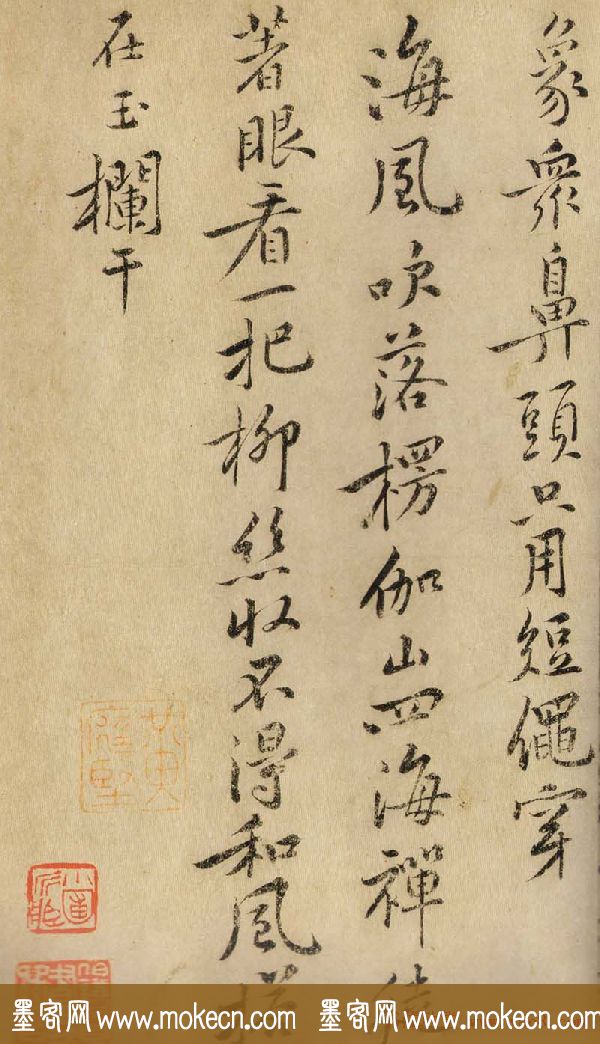 象衆鼻頭只用短繩穿
海風吹落楞伽山四海禪徒
著眼看一把柳絲收不得和風搭
在玉欄干
墨客网 www.mokecn.com 墨客网 www.mokecn.com